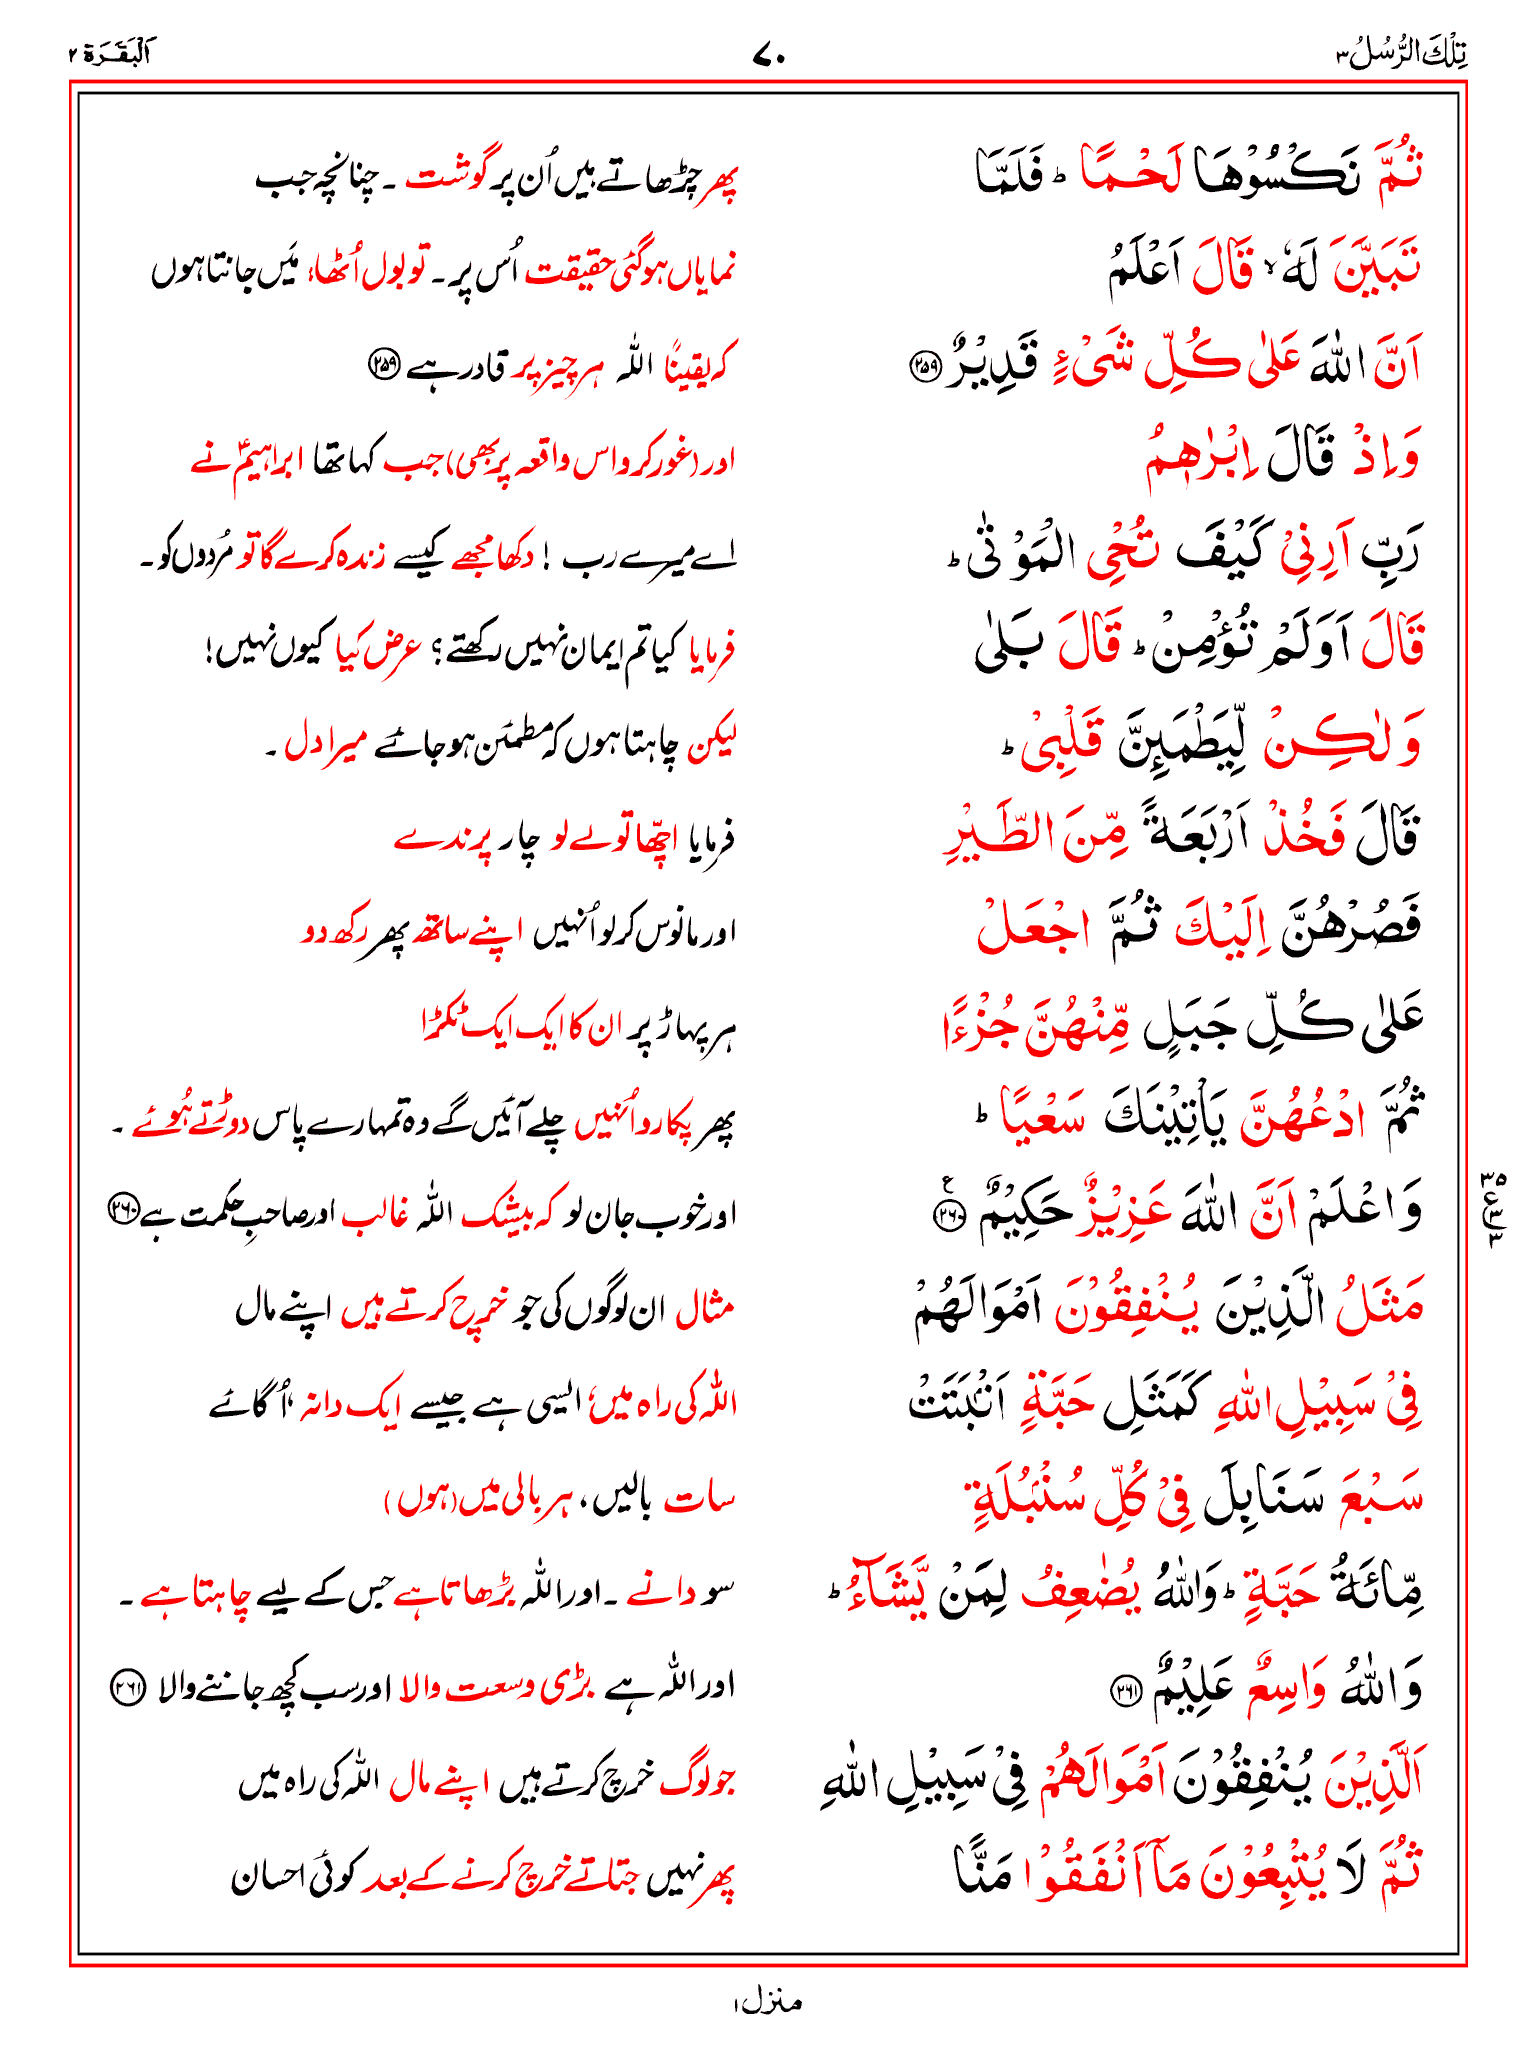 تِلْكَ الرُّسُلُ ۳
۷۰
اَلْبَقَرَة ۲
ثُمَّ نَكْسُوْهَا لَحْمًا ؕ فَلَمَّا
پھر چڑھاتے ہیں اُن پر گوشت ۔ چنانچہ جب
تَبَيَّنَ لَهٗ ۙ قَالَ اَعْلَمُ
نمایاں ہوگئی حقیقت اُس پر ۔ تو بول اُٹھا، مَیں جانتا ہوں
اَنَّ اللّٰهَ عَلٰى كُلِّ شَىْءٍ قَدِيْرٌ ﴿۲۵۹﴾
کہ یقیناً اللہ ہر چیز پر قادر ہے ﴿۲۵۹﴾
وَاِذْ قَالَ اِبْرٰهٖمُ
اور (غور کرو اس واقعہ پر بھی) جب کہا تھا ابراہیمؑ نے
رَبِّ اَرِنِىْ كَيْفَ تُحْىِ الْمَوْتٰى ؕ
اے میرے رب ! دکھا مجھے کیسے زندہ کرے گا تو مُردوں کو ۔
قَالَ اَوَلَمْ تُؤْمِنْ ؕ قَالَ بَلٰى
فرمایا کیا تم ایمان نہیں رکھتے؟ عرض کیا کیوں نہیں!
وَلٰكِنْ لِّيَطْمَئِنَّ قَلْبِىْ ؕ
لیکن چاہتا ہوں کہ مطمئن ہو جائے میرا دل ۔
قَالَ فَخُذْ اَرْبَعَةً مِّنَ الطَّيْرِ
فرمایا اچّھا تو لے لو چار پرندے
فَصُرْهُنَّ اِلَيْكَ ثُمَّ اجْعَلْ
اور مانوس کر لو اُنہیں اپنے ساتھ پھر رکھ دو
عَلٰى كُلِّ جَبَلٍ مِّنْهُنَّ جُزْءًا
ہر پہاڑ پر ان کا ایک ایک ٹکڑا
ثُمَّ ادْعُهُنَّ يَاْتِيْنَكَ سَعْيًا ؕ
پھر پکارو اُنہیں چلے آئیں گے وہ تمہارے پاس دوڑتے ہُوئے ۔
وَاعْلَمْ اَنَّ اللّٰهَ عَزِيْزٌ حَكِيْمٌ ﴿۲۶۰﴾ ع
اور خوب جان لو کہ بیشک اللہ غالب اور صاحبِ حکمت ہے ﴿۲۶۰﴾
۳۵ ع ۳ ۳
مَثَلُ الَّذِيْنَ يُنْفِقُوْنَ اَمْوَالَهُمْ
مثال ان لوگوں کی جو خرچ کرتے ہیں اپنے مال
فِىْ سَبِيْلِ اللّٰهِ كَمَثَلِ حَبَّةٍ اَنْۢبَتَتْ
اللہ کی راہ میں، ایسی ہے جیسے ایک دانہ، اُگائے
سَبْعَ سَنَابِلَ فِىْ كُلِّ سُنْۢبُلَةٍ
سات بالیں، ہر بالی میں (ہوں)
مِّائَةُ حَبَّةٍ ؕ وَاللّٰهُ يُضٰعِفُ لِمَنْ يَّشَآءُ ؕ
سو دانے ۔ اور اللہ بڑھاتا ہے جس کے لیے چاہتا ہے ۔
وَاللّٰهُ وَاسِعٌ عَلِيْمٌ ﴿۲۶۱﴾
اور اللہ ہے بڑی وسعت والا اور سب کچھ جاننے والا ﴿۲۶۱﴾
اَلَّذِيْنَ يُنْفِقُوْنَ اَمْوَالَهُمْ فِىْ سَبِيْلِ اللّٰهِ
جو لوگ خرچ کرتے ہیں اپنے مال اللہ کی راہ میں
ثُمَّ لَا يُتْبِعُوْنَ مَآ اَنْفَقُوْا مَنًّا
پھر نہیں جتاتے خرچ کرنے کے بعد کوئی احسان
منزل ۱